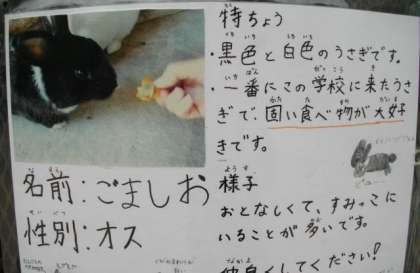 特ちょう
・黒色と白色のうさぎです。
・一番にこの学校に来たうさ
ぎで、固い食べ物が大好
きです。
様子
おとなしくて、すみっこに
いることが多いです。
仲良くしてください!
名前:ごましお
性別:オス